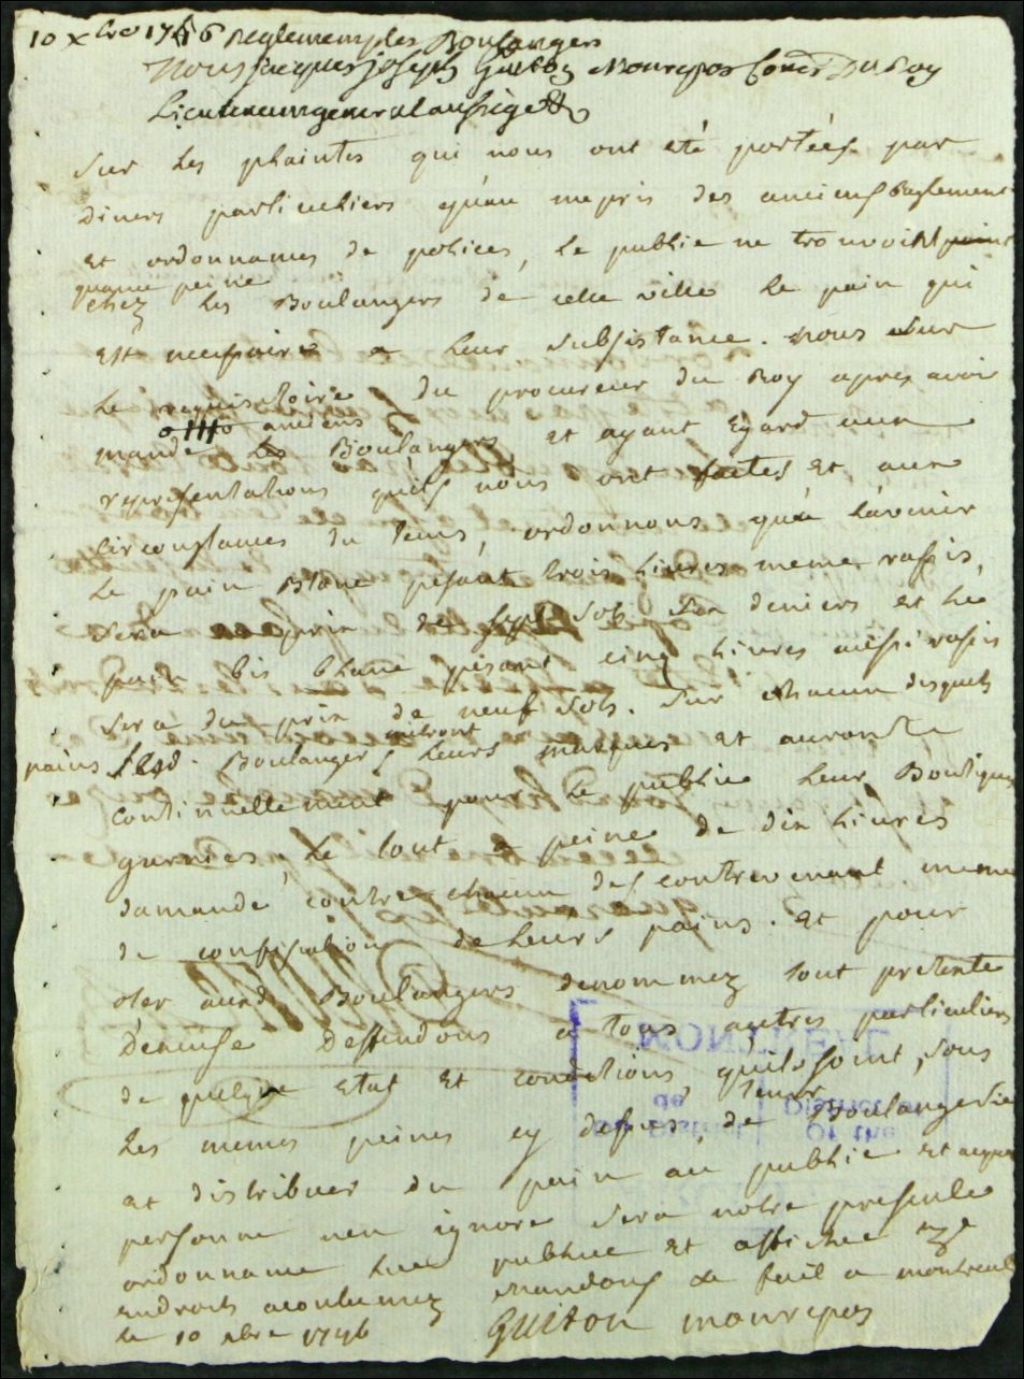 10 xbre 1746 Reglement ples Boulangers
Nous jacques joseph Guiton Monrepos Coner Du Roy
Lieutenant general au siege &
sur les plaintes qui nous ont eté portées par
divers particuliers qu'au mepris des anciens Reglement
et ordonnances de polices, le public ne trouvoit point
qu'avec peine
chez les Boulangers de cette ville le pain qui
est necessaire a leur subsistance. nous sur
le requisitoire du procureur du Roy apres avoir
anciens
mandé les Boulangers et ayant Egard aux
representations quils nous ont faites et aux
circonstances du tems, ordonnons qu'a l'avenir
le pain Blanc pesant trois Livres meme rassis,
sera du prix de sept sols six deniers et le
pain bis blanc pesant cinq Livres aussi rassis
sera du prix de neuf sols. sur chacun desquels
mettront
pains lesd. Boulangers leurs marques et auront
continuellement pour le public leur Boutiques
garnies, le tout a peine de dix Livres
damande contre chacun des contrevenant meme
de confiscation de leurs pains. et pour
oter auxd. Boulangers denommez tout pretexte
D'excuse Deffendons a tous autres particuliers
de quelque etat et conditions quils soint, sous
les memes peines cy dessus, de tenir Boulangerie
et distribuer du pain au public et acque
personne n'en ignore sera notre presente
ordonnance lue publiée et affichée
endroits acoutumez mandons &c fait a montreal
le 10 xbre 1746 Guiton monrepos
MONTREAL
de
District
District
Of the